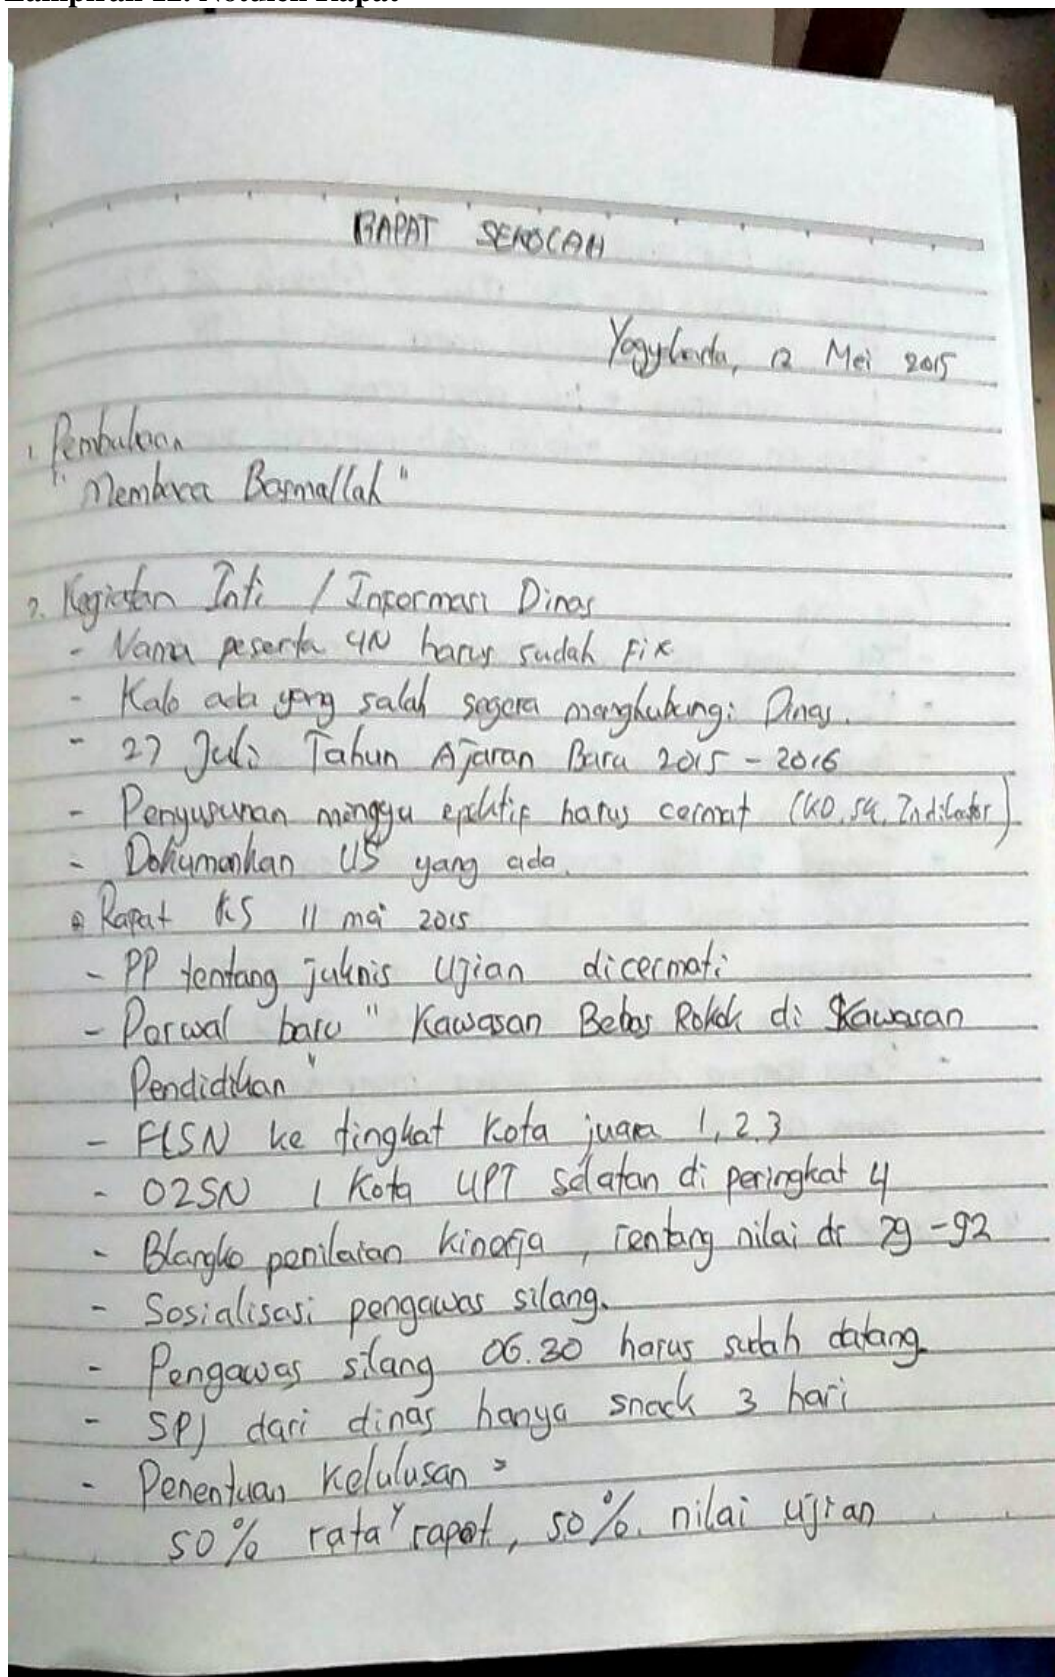 Lampiran 12. Notulen Rapat
RAPAT SEKOLAH
Yogyakarta, 12 Mei 2015
1. Pembukaan
"Membaca Basmallah"
2. Kegiatan Inti / Informasi Dinas
- Nama peserta UN harus sudah Fix
- Kalo ada yang salah segera menghubungi Dinas.
- 27 Juli Tahun Ajaran Baru 2015 - 2016
- Penyusunan minggu epektif harus cermat (KD, SK, Indikator)
- Dokumenkan US yang ada.
Rapat KS 11 mei 2015
- PP tentang juknis Ujian dicermati
- Perwal baru "Kawasan Bebas Rokok di Kawasan
Pendidikan"
- FLSN ke tingkat Kota juara 1, 2, 3
- O2SN 1 Kota UPT Selatan di peringkat 4
- Blangko penilaian kinerja, rentang nilai dr 79 - 92
- Sosialisasi pengawas silang.
- Pengawas silang 06.30 harus sudah datang.
- SPJ dari dinas hanya snack 3 hari
- Penentuan Kelulusan =
50% rata" rapot, 50% nilai ujian